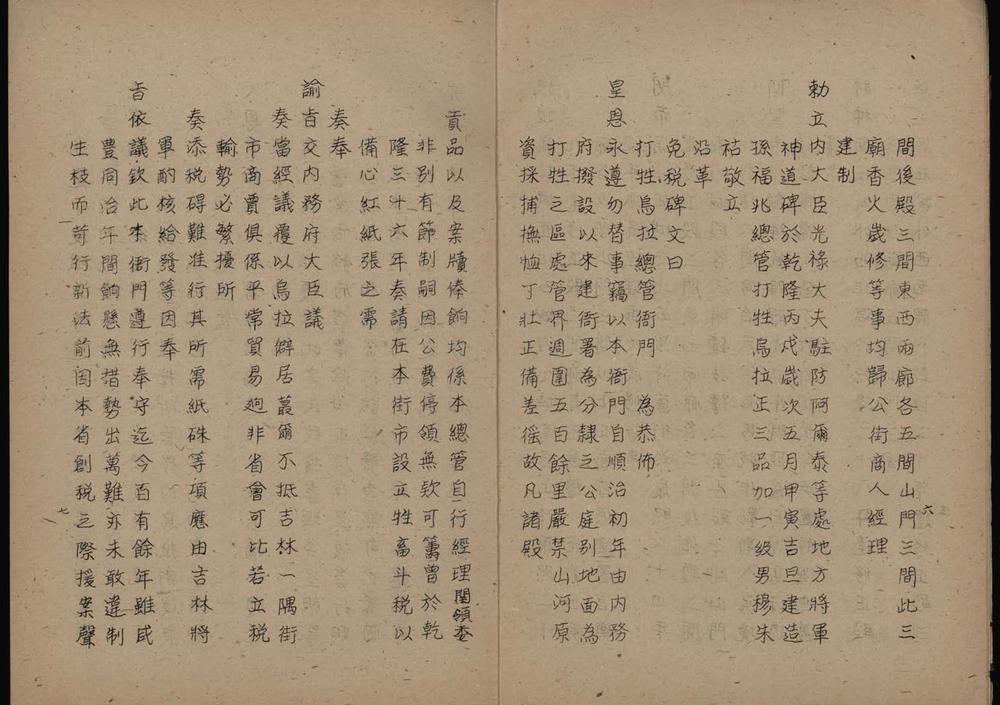 間後殿三間東西兩廊各五間山門三間此三
廟香火歲修等事均歸公街商人經理
建制
勅立內大臣光祿大夫駐防阿爾泰等處地方將軍
神道碑於乾隆丙戌歲次五月甲寅吉旦建造
孫福兆總管打牲烏拉正三品加一級男穆朱
祜敬立
沿革
免稅碑文曰
打牲烏拉總管衙門 為恭佈
皇恩永遵勿替事竊以本衙門自順治初年由內務
府撥設以來建衙署為分隸之公庭別地面為
打牲之區處管界週圍五百餘里嚴禁山河原
資採捕撫恤丁壯正備差徭故凡諸殿
六
貢品以及案牘俸餉均係本總管自行經理関領委
非別有節制嗣因公費停領無欵可籌曾於乾
隆三十六年奏請在本街市設立牲畜斗稅以
備心紅紙張之需
奏奉
諭旨交內務府大臣議
奏當經議覆以烏拉僻居蕞爾不抵吉林一隅街
市商賈俱係平常貿易迥非省會可比若立稅
輸勢必繁擾所
奏添稅碍難准行其所需紙硃等項應由吉林將
軍酌核給發等因奉
旨依議欽此本衙門遵行奉守迄今百有餘年雖咸
豐同治年間餉懸無措勢出萬難亦未敢違制
生枝而苛行新法前因本省創稅之際援案聲
七